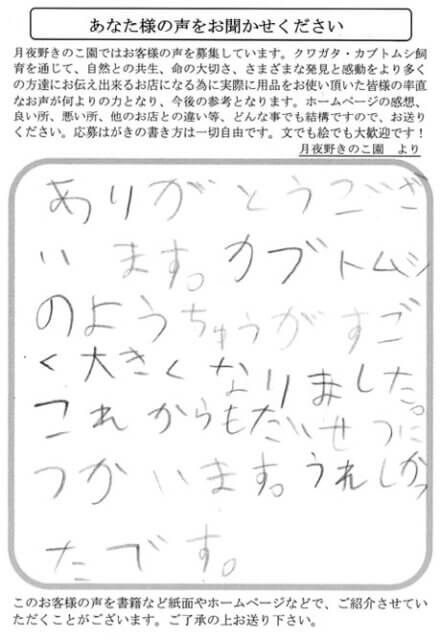 あなた様の声をお聞かせください
月夜野きのこ園ではお客様の声を募集しています。クワガタ・カブトムシ飼
育を通じて、自然との共生、命の大切さ、さまざまな発見と感動をより多く
の方達にお伝え出来るお店になる為に実際に用品をお使い頂いた皆様の率直
なお声が何よりの力となり、今後の参考となります。ホームページの感想、
良い所、悪い所、他のお店との違い等、どんな事でも結構ですので、お送り
ください。応募はがきの書き方は一切自由です。文でも絵でも大歓迎です！
月夜野きのこ園　より
ありがとうござ
います。カブトムシ
のようちゅうがすご
く大きくなりました。
これからもたいせつに
つかいます。うれしかっ
たです。
このお客様の声を書籍など紙面やホームページなどで、ご紹介させてい
ただくことがございます。ご了承の上お送り下さい。